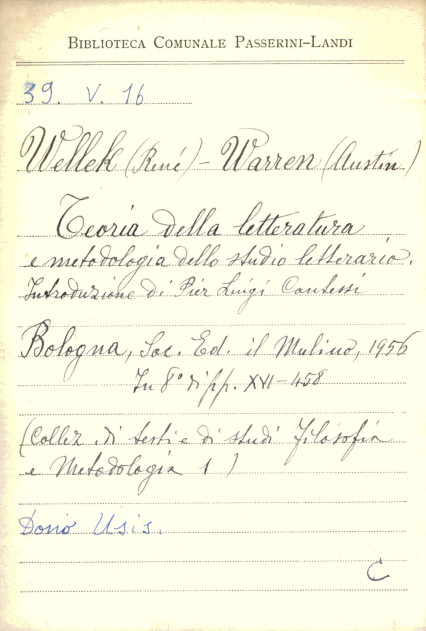 BIBLIOTECA COMUNALE PASSERINI-LANDI
39. V. 16
Wellek (René) - Warren (Austin)
Teoria della letteratura
e metodologia dello studio letterario.
Introduzione di Pier Luigi Contessi
Bologna, Soc. Ed. il Mulino, 1956
In 8° di pp. XVI-458
(Collez. di testi e di studi Filosofia
e Metodologia 1)
Dono Usis.
C